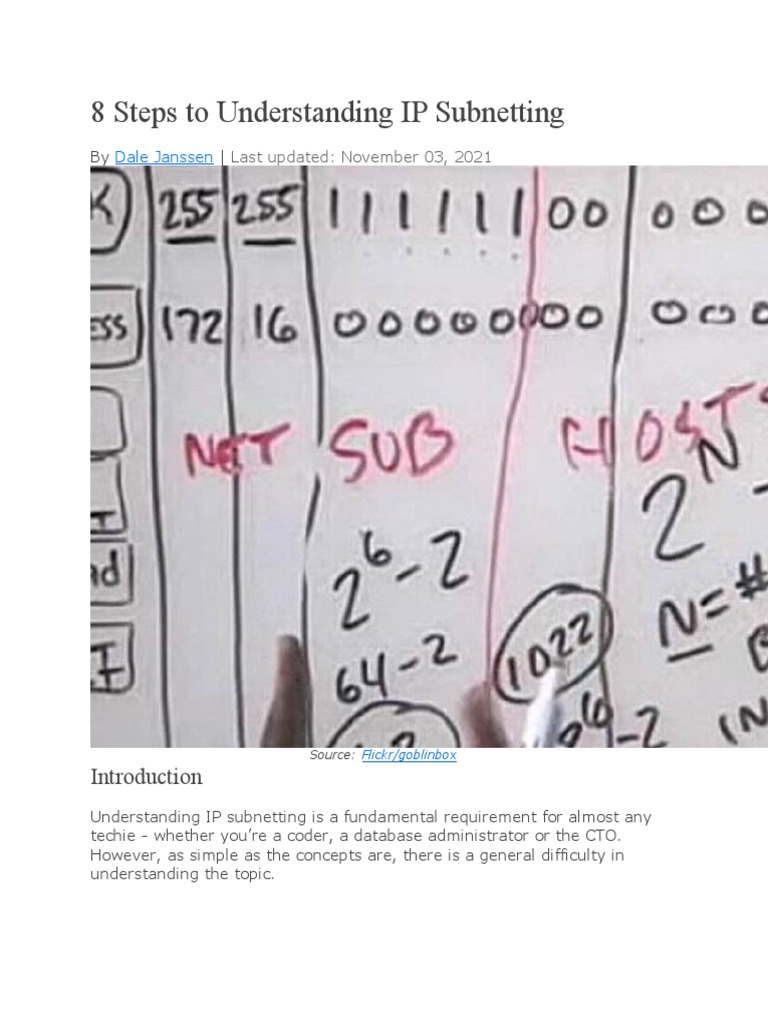 8 Steps to Understanding IP Subnetting
By Dale Janssen | Last updated: November 03, 2021
K 255 255 111111 00 000
ESS 172 16 00000000 000
NET SUB HOSTS
2^N -
2^6-2
N=#
64-2 1022
6-2 IN
Source: Flickr/goblinbox
Introduction
Understanding IP subnetting is a fundamental requirement for almost any
techie - whether you're a coder, a database administrator or the CTO.
However, as simple as the concepts are, there is a general difficulty in
understanding the topic.